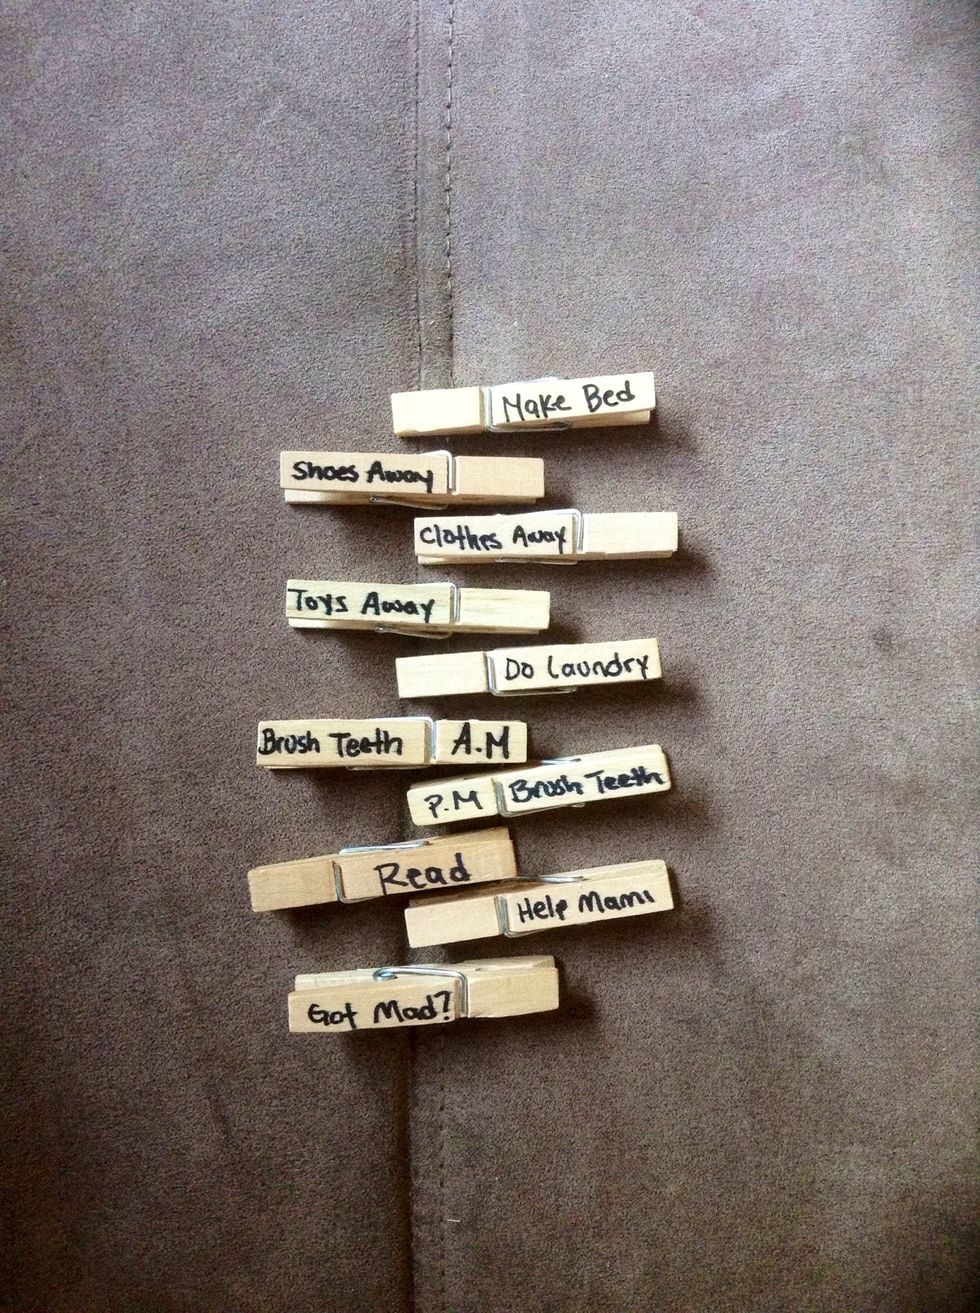 Make Bed
Shoes Away
Clothes Away
Toys Away
Do Laundry
Brush Teeth A.M
P.M Brush Teeth
Read
Help Mami
Got Mad?